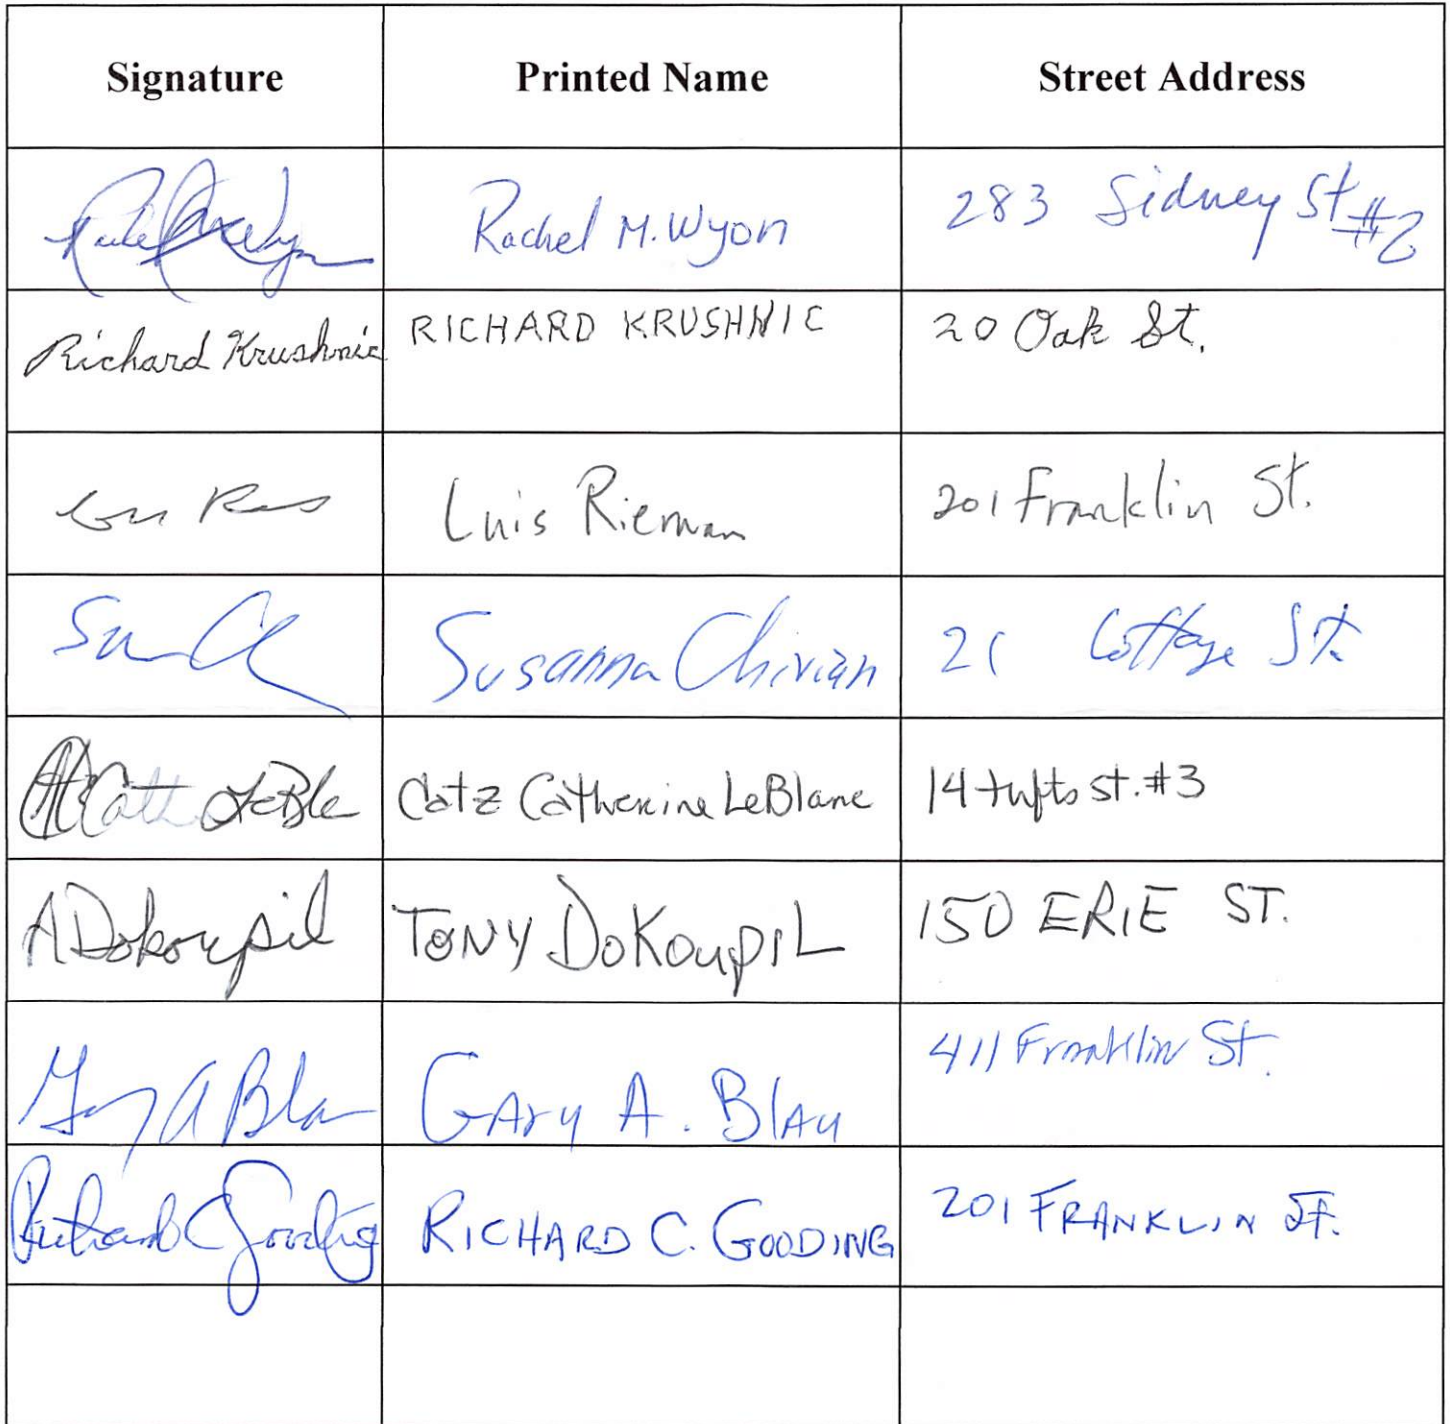 Signature Printed Name Street Address
Rachel M. Wyon 283 Sidney St #2
Richard Krushnic RICHARD KRUSHNIC 20 Oak St.
Luis Rieman 201 Franklin St.
Susanna Chivian 21 Cottage St.
Catz Catherine LeBlanc 14 tufts st. #3
A Dokoupil TONY DoKoupiL 150 ERIE ST.
Gary A Blau GAry A. BlAu 411 Franklin St.
Richard C Gooding RICHARD C. GOODING 201 FRANKLIN ST.